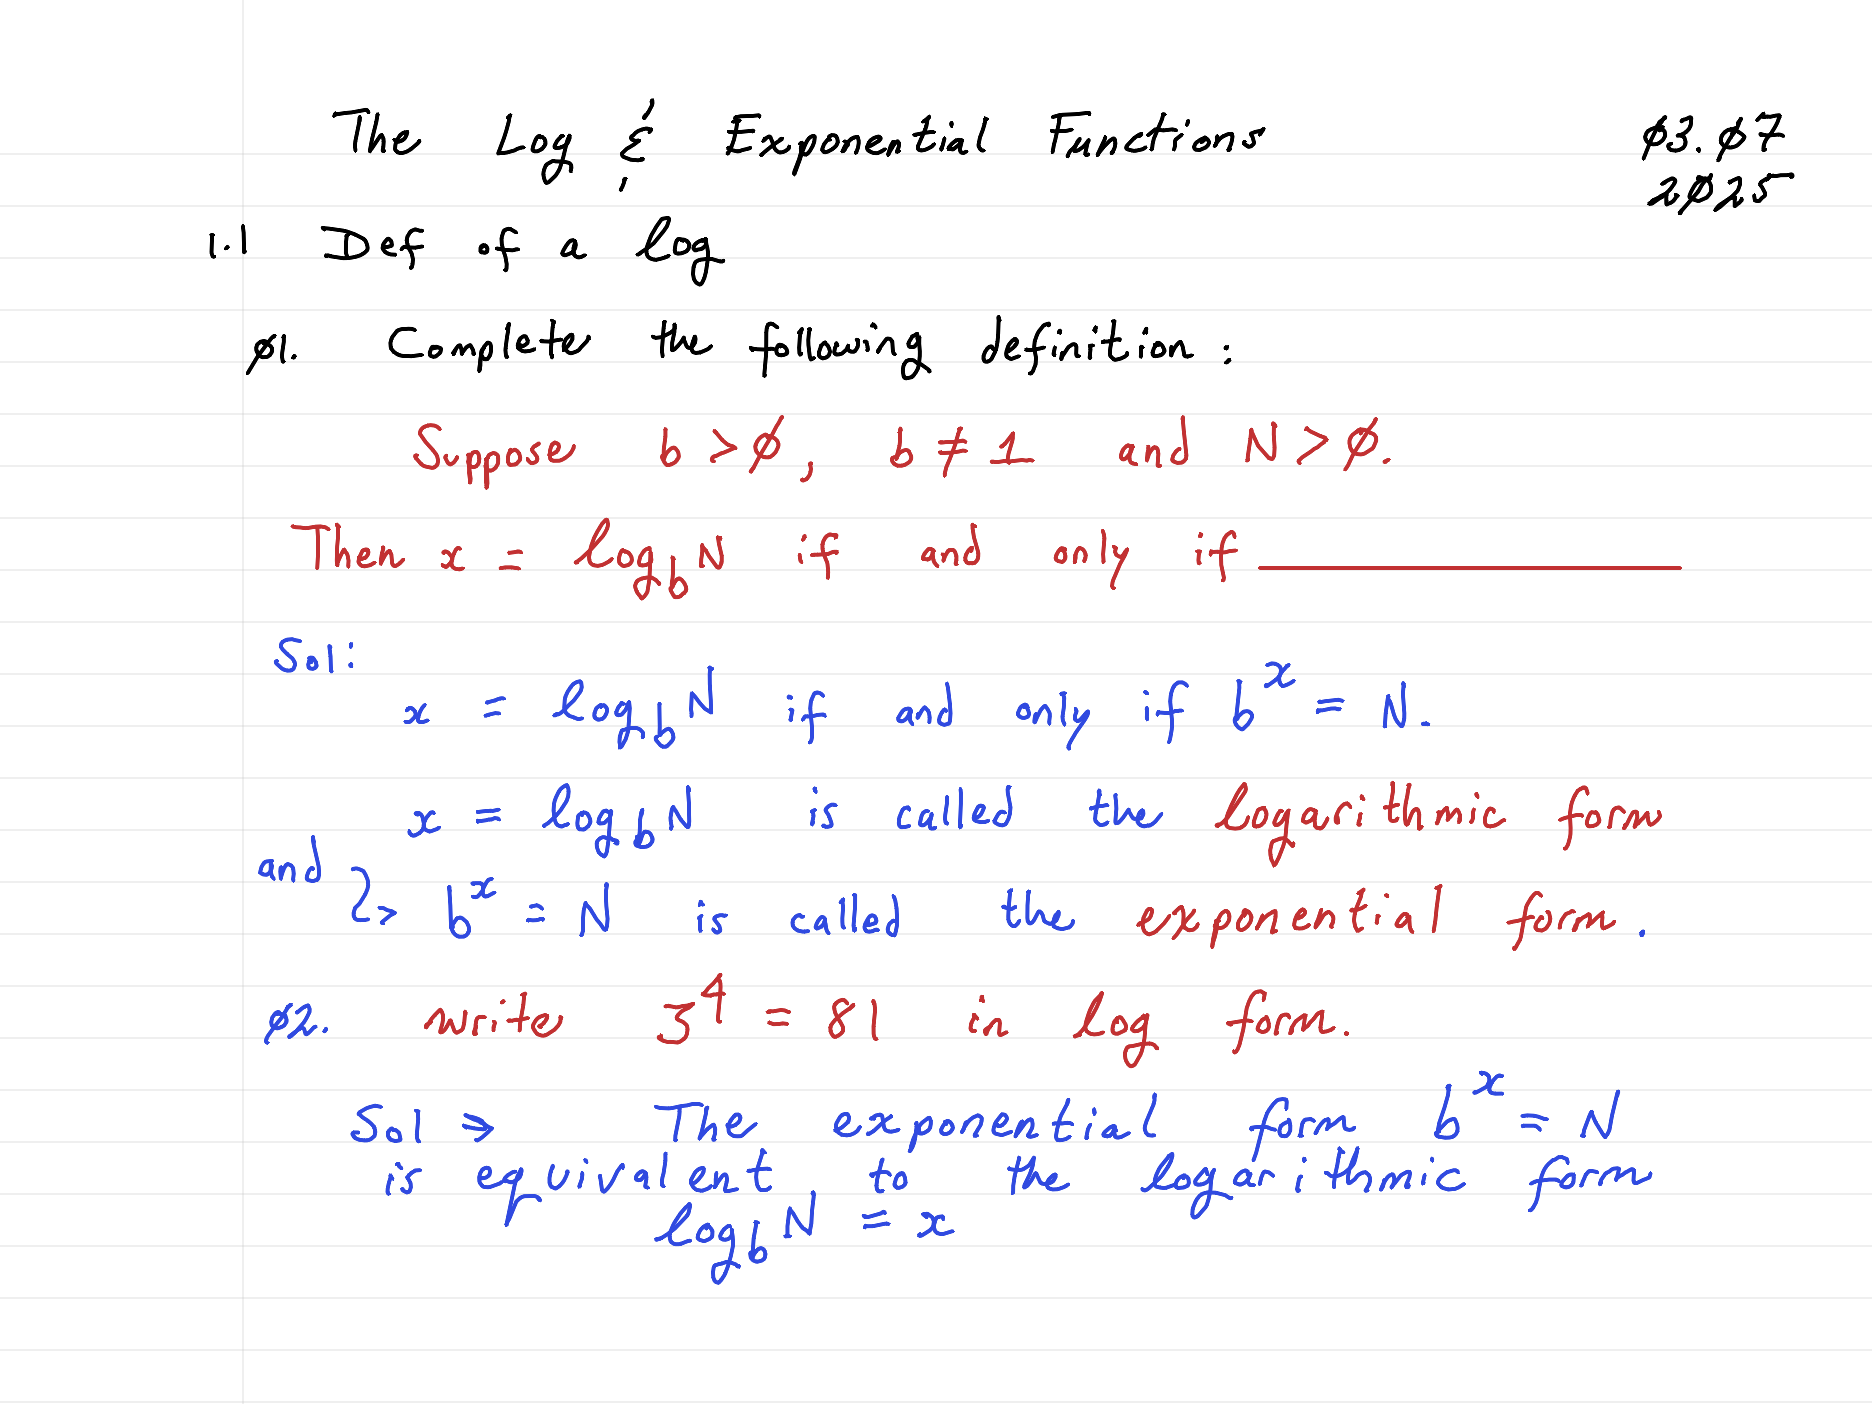 The Log & Exponential Functions
Ø3.Ø7
2Ø25
1.1 Def of a log
Ø1. Complete the following definition:
Suppose b > Ø, b ≠ 1 and N > Ø.
Then x = log_b N if and only if ____________
Sol:
x = log_b N if and only if b^x = N.
x = log_b N is called the logarithmic form
and → b^x = N is called the exponential form.
Ø2. write 3^4 = 81 in log form.
Sol → The exponential form b^x = N
is equivalent to the logarithmic form
log_b N = x